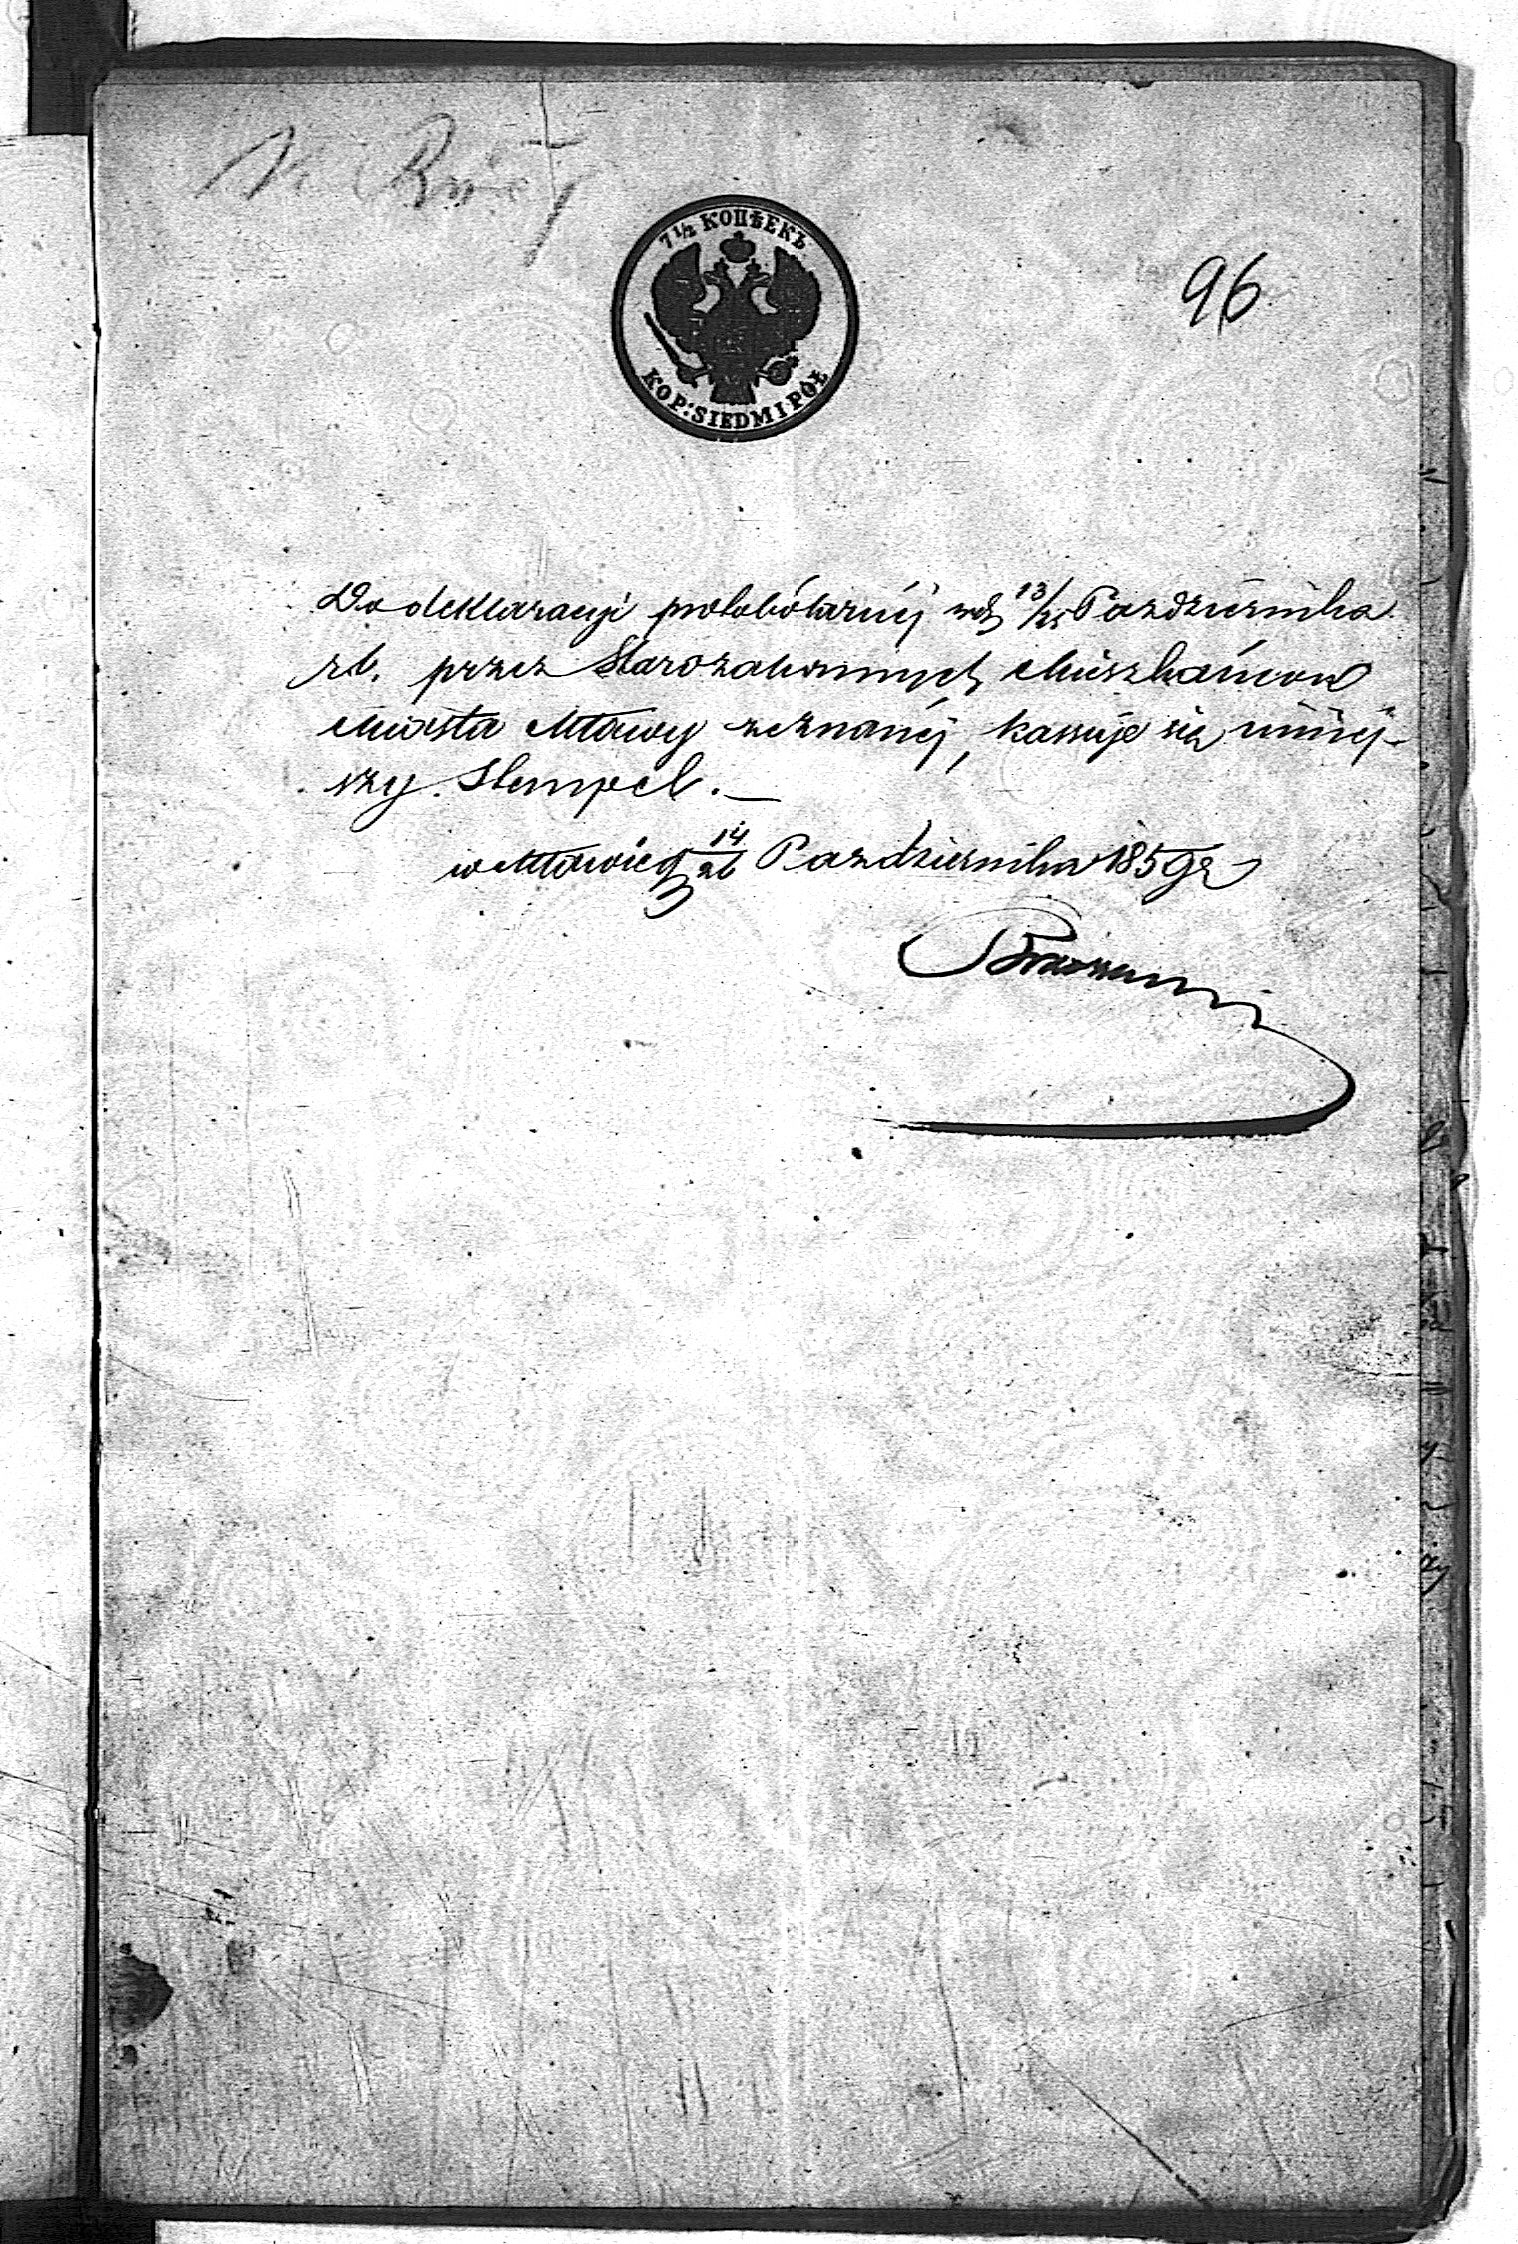 96
7½ КОПѢЕКЪ
KOP: SIEDM I PÓŁ
Do deklaracyi protokólarnéj wd 13/25 Pazdziernika
rb. przez Starozakonnych Mieszkańców
Miasta Mławy zeznanéj, kassuje się niniéj-
szy Stempel. —
w Mławie d 14/26 Pazdziernika 1859 r